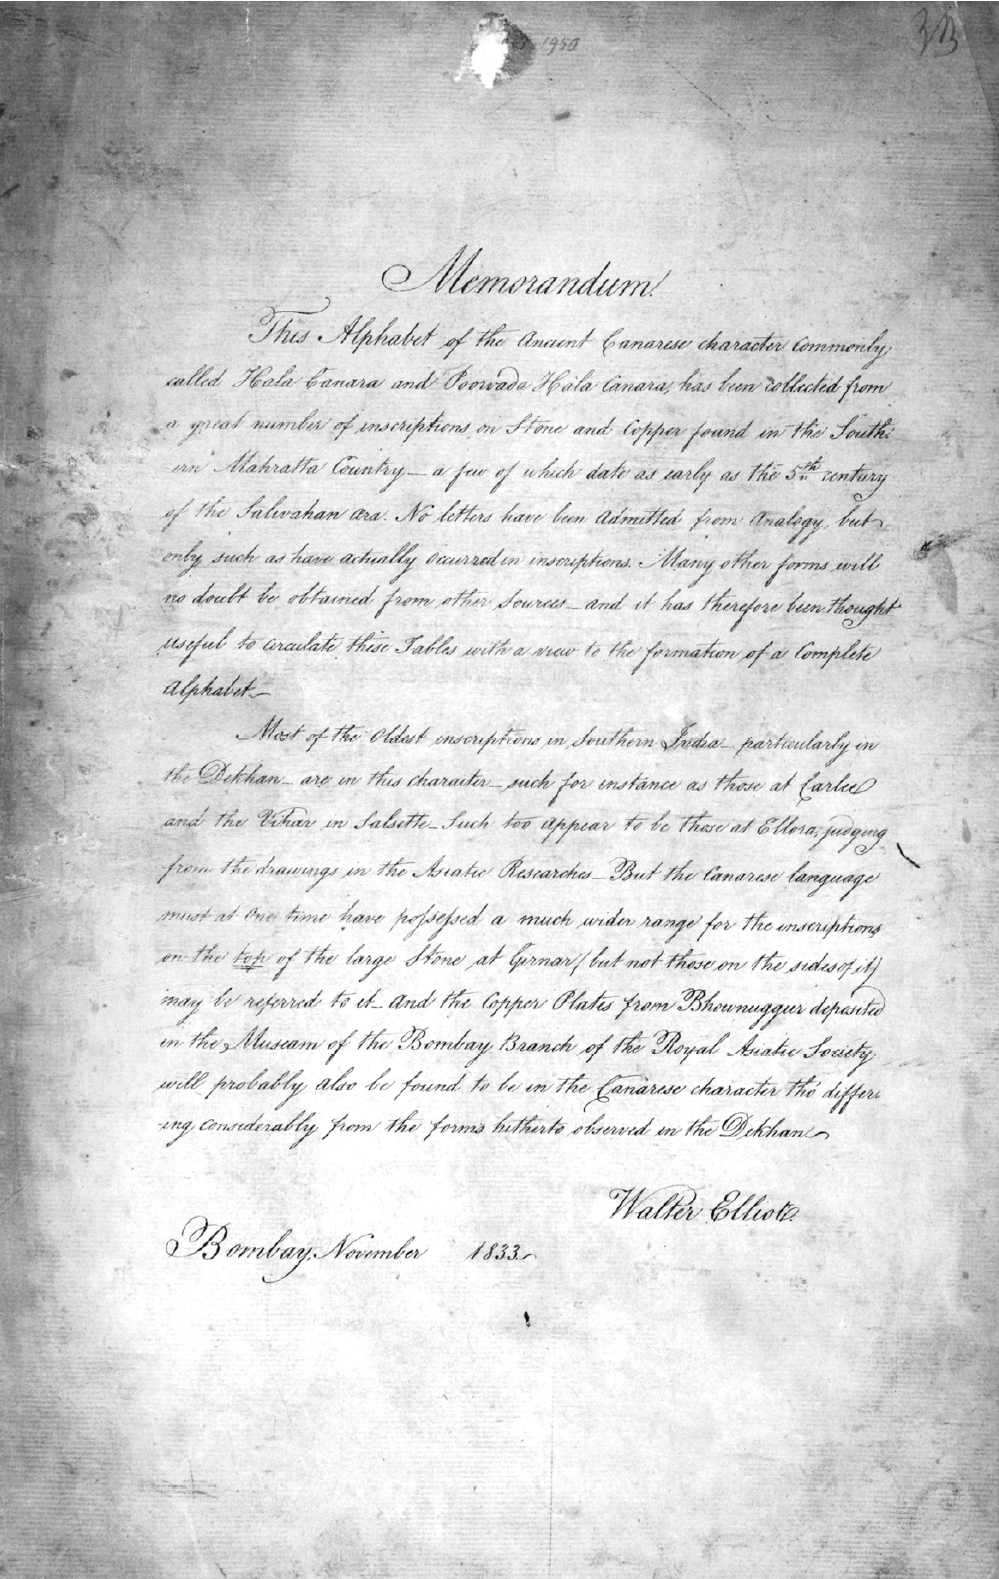 1950
Memorandum.
This Alphabet of the Ancient Canarese character commonly
called Hala Canara and Poorvada Hala Canara, has been collected from
a great number of inscriptions on Stone and Copper found in the South:
ern Mahratta Country — a few of which date as early as the 5th century
of the Salivahan æra. No letters have been admitted from Analogy, but
only such as have actually occurred in inscriptions. Many other forms will
no doubt be obtained from other sources — and it has therefore been thought
useful to circulate these Tables with a view to the formation of a Complete
Alphabet —
Most of the oldest inscriptions in Southern India — particularly in
the Dekhan — are in this character — such for instance as those at Carlee
and the Vihar in Salsette — Such too appear to be those at Ellora, judging
from the drawings in the Asiatic Researches — But the Canarese language
must at one time have possessed a much wider range for the inscriptions
on the top of the large Stone at Girnar (but not those on the sides of it)
may be referred to it — and the Copper Plates from Bhownuggur deposited
in the Museum of the Bombay Branch of the Royal Asiatic Society
will probably also be found to be in the Canarese character tho' differ:
ing considerably from the forms hitherto observed in the Dekhan —
Walter Elliot
Bombay, November 1833.